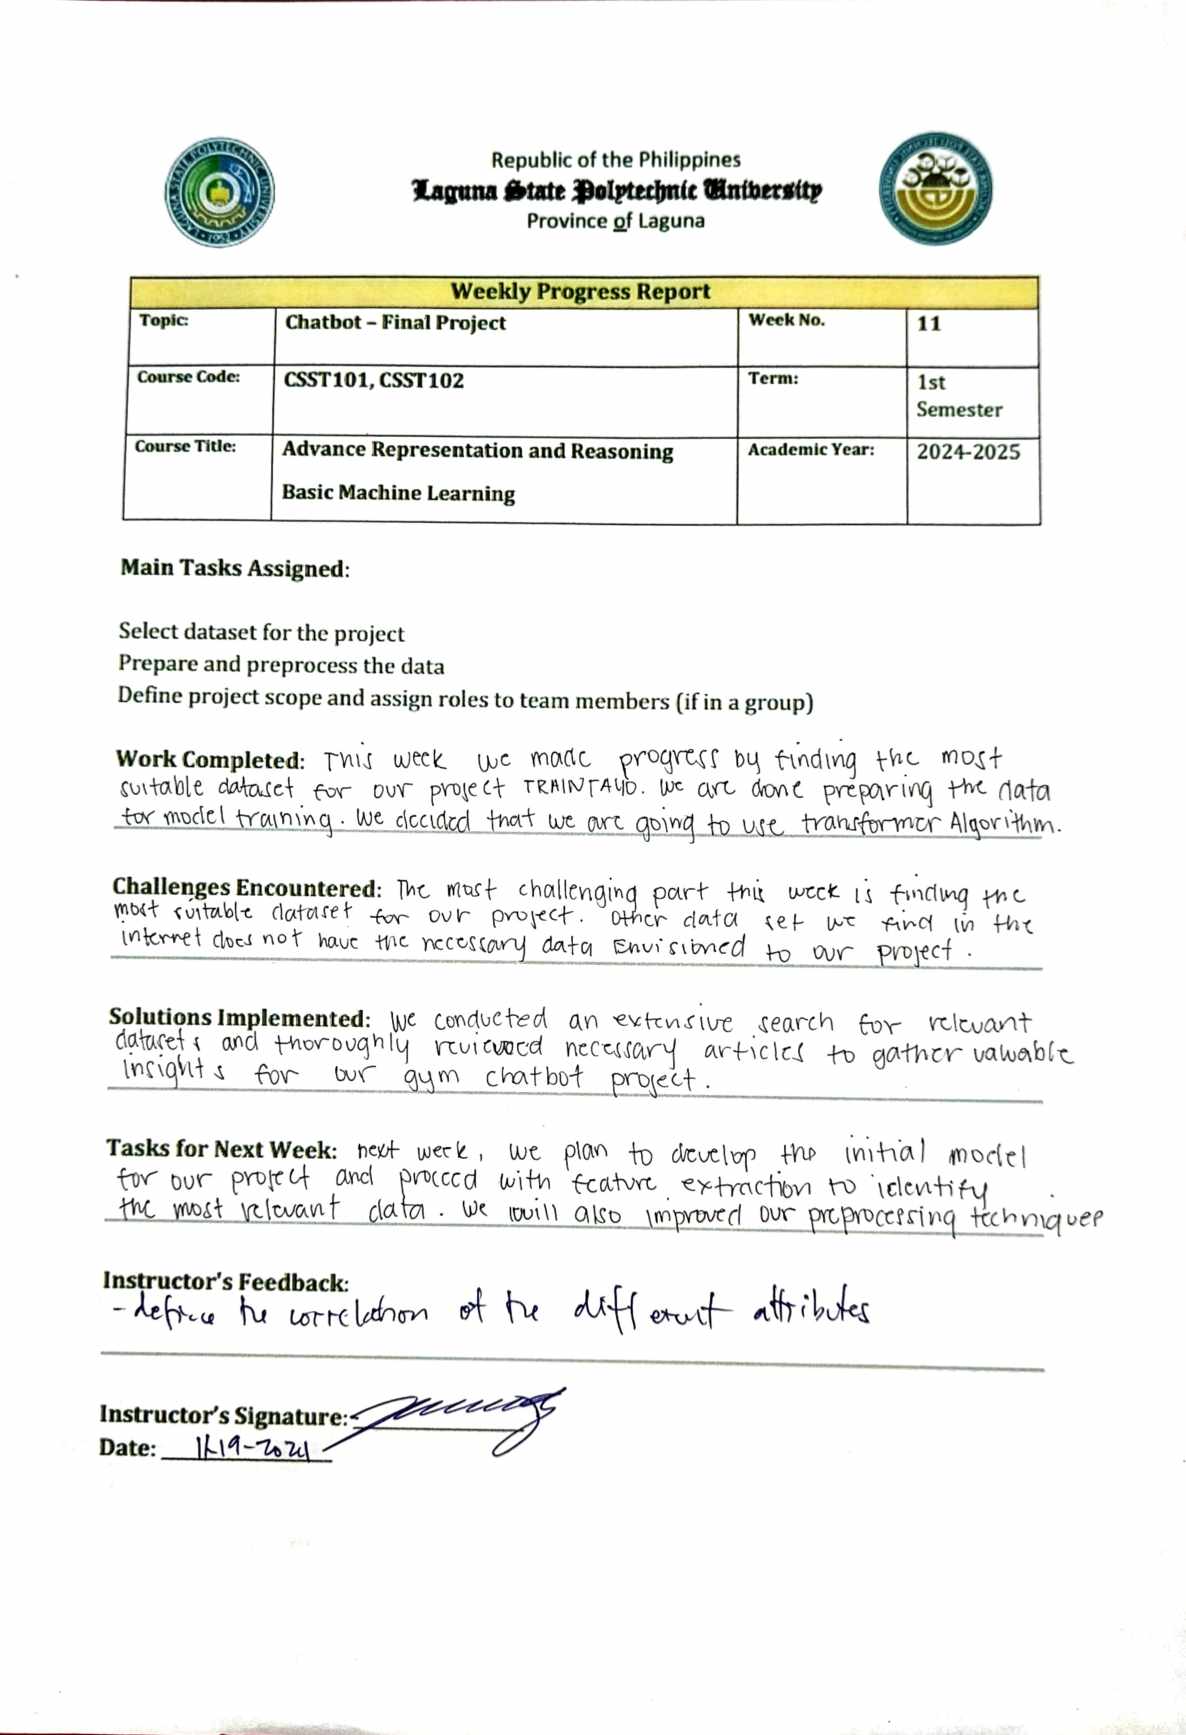 Republic of the Philippines
Laguna State Polytechnic University
Province of Laguna
LAGUNA STATE POLYTECHNIC UNIVERSITY
1952
Weekly Progress Report
Topic: Chatbot – Final Project Week No. 11
Course Code: CSST101, CSST102 Term: 1st
Semester
Course Title: Advance Representation and Reasoning Academic Year: 2024-2025
Basic Machine Learning
Main Tasks Assigned:
Select dataset for the project
Prepare and preprocess the data
Define project scope and assign roles to team members (if in a group)
Work Completed: This week we made progress by finding the most
suitable dataset for our project TRAINTAYO. We are done preparing the data
for model training. We decided that we are going to use transformer Algorithm.
Challenges Encountered: The most challenging part this week is finding the
most suitable dataset for our project. Other data set we find in the
internet does not have the necessary data Envisioned to our project.
Solutions Implemented: We conducted an extensive search for relevant
datasets and thoroughly reviewed necessary articles to gather valuable
insights for our gym chatbot project.
Tasks for Next Week: next week, we plan to develop the initial model
for our project and proceed with feature extraction to identify
the most relevant data. We will also improved our preprocessing techniques
Instructor's Feedback:
- define the correlation of the different attributes
Instructor's Signature:
Date: 11-19-2024